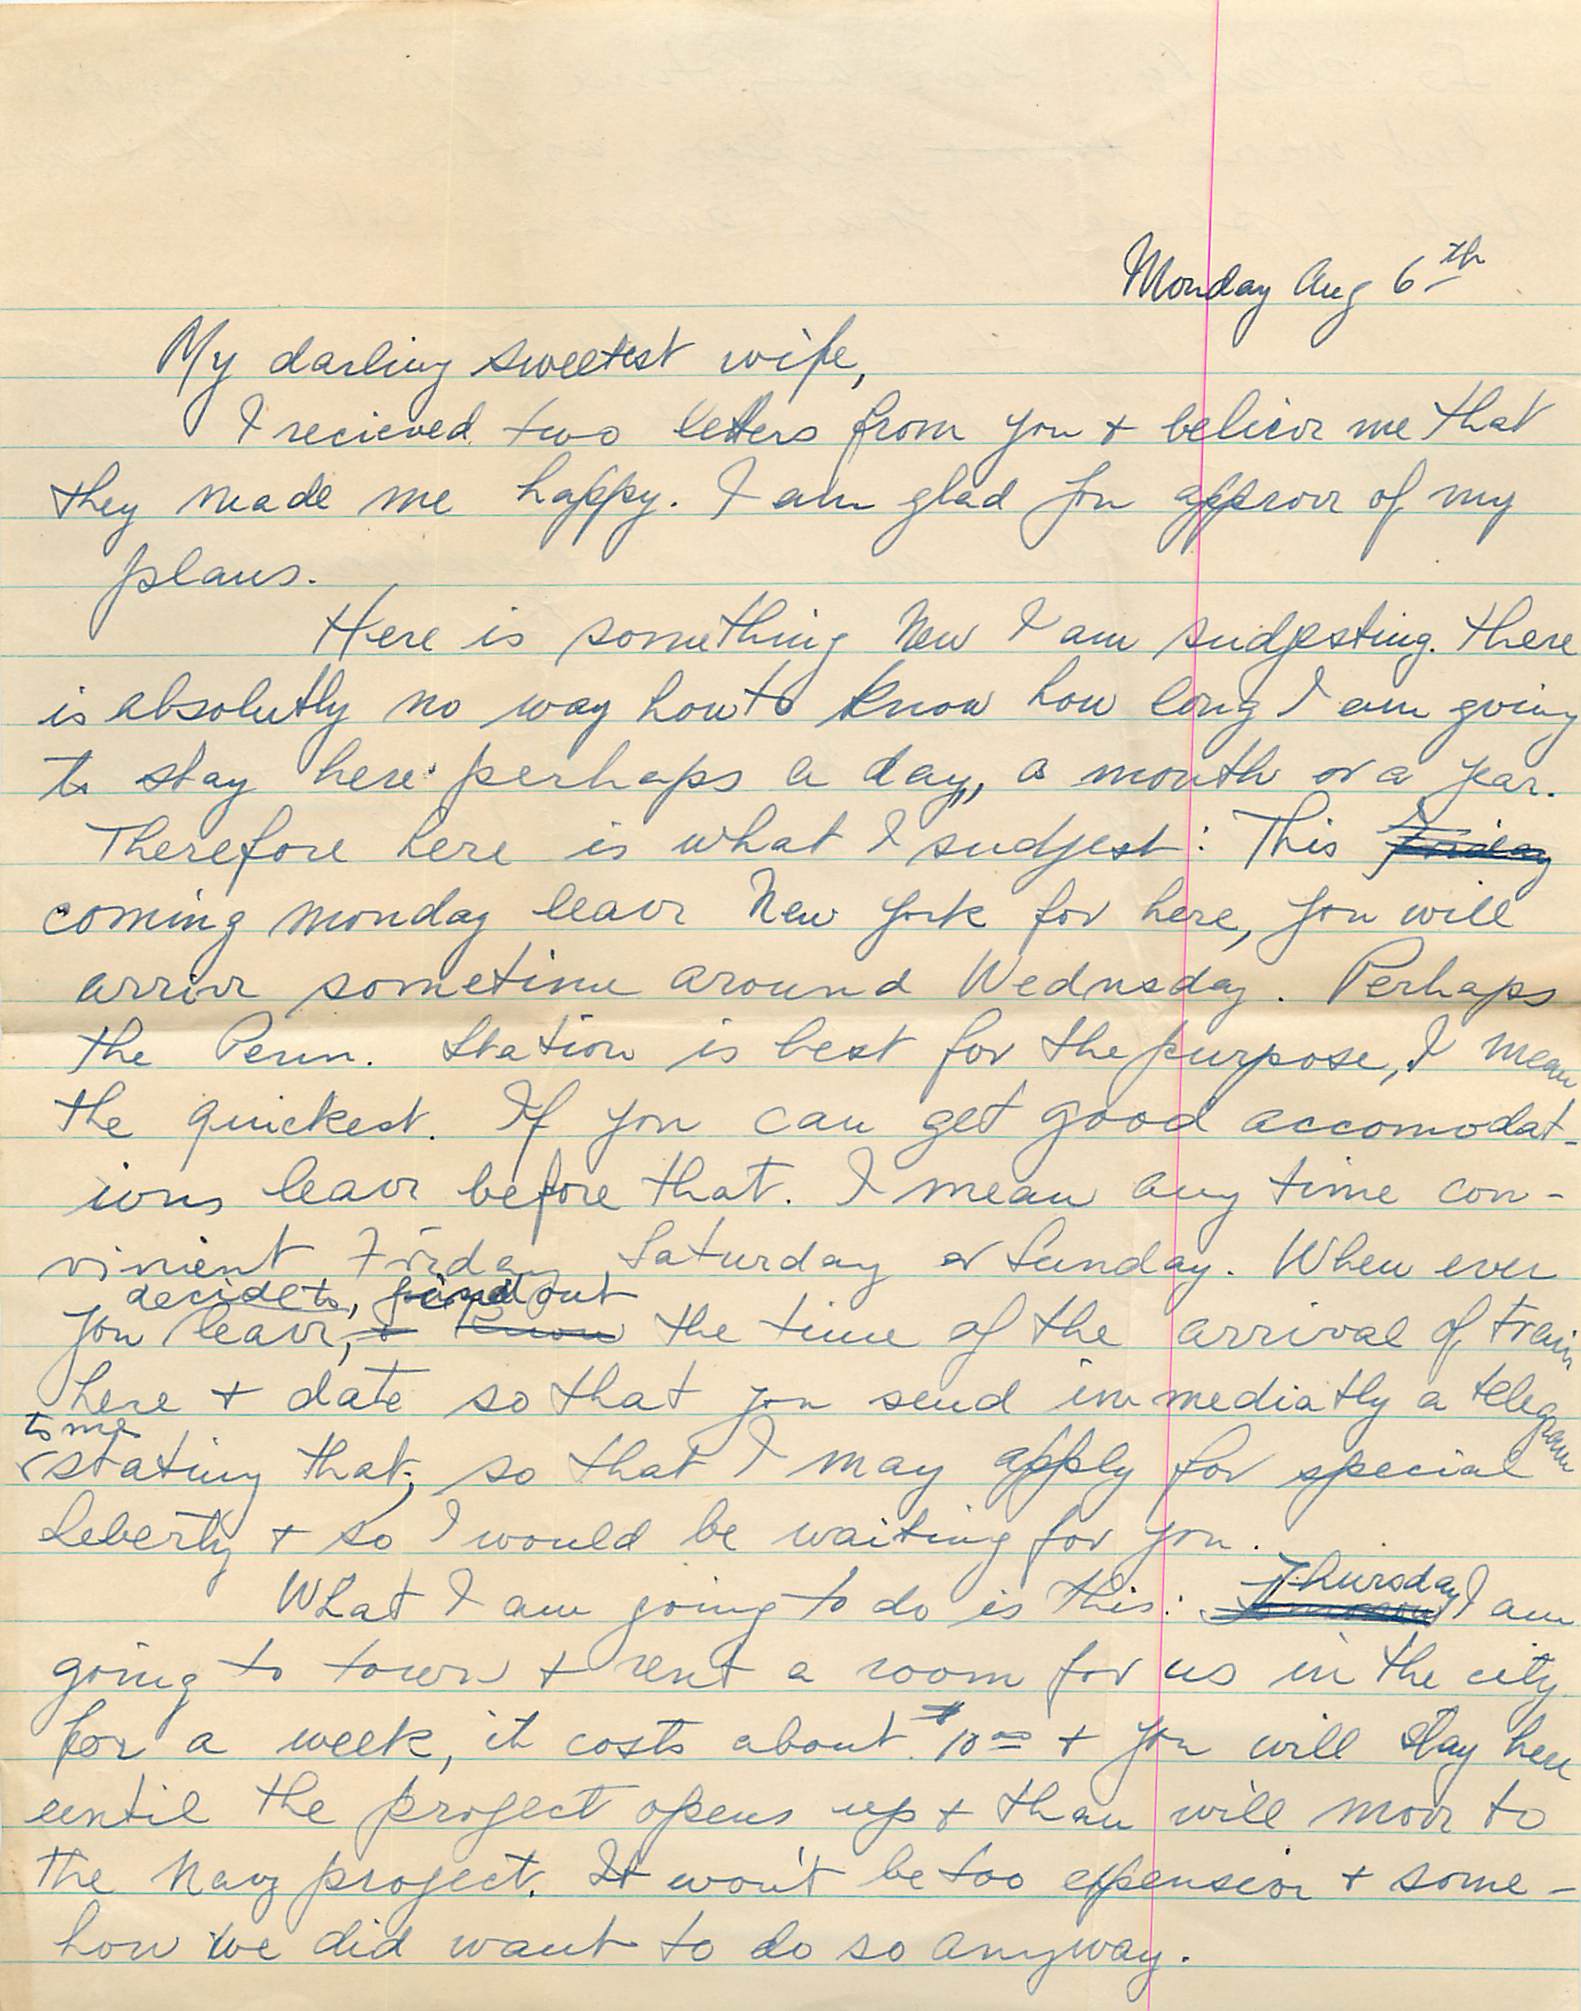 Monday Aug 6th
My darling sweetest wife,
I recieved two letters from you + believe me that
they made me happy. I am glad you approve of my
plans.
Here is something New I am sudjesting. There
is absolutly no way how to know how long I am going
to stay here perhaps a day, a month or a year.
Therefore here is what I sudjest: This Friday
coming monday leave New York for here, you will
arrive sometime around Wednsday. Perhaps
the Penn. Station is best for the purpose, I mean
the quickest. If you can get good accomodat-
ions leave before that. I mean any time con-
vinient Friday Saturday or Sunday. When ever
decide to, find out
you leave, & know the time of the arrival of train
here + date so that you send immediatly a telegram
to me
stating that, so that I may apply for special
Leberty + so I would be waiting for you.
Thursday
What I am going to do is this: tomorow I am
going to town + rent a room for us in the city
for a week, it costs about $10 00 + you will stay here
until the project opens up + than will move to
the Navy project. It won't be too expensive + some-
how we did want to do so anyway.